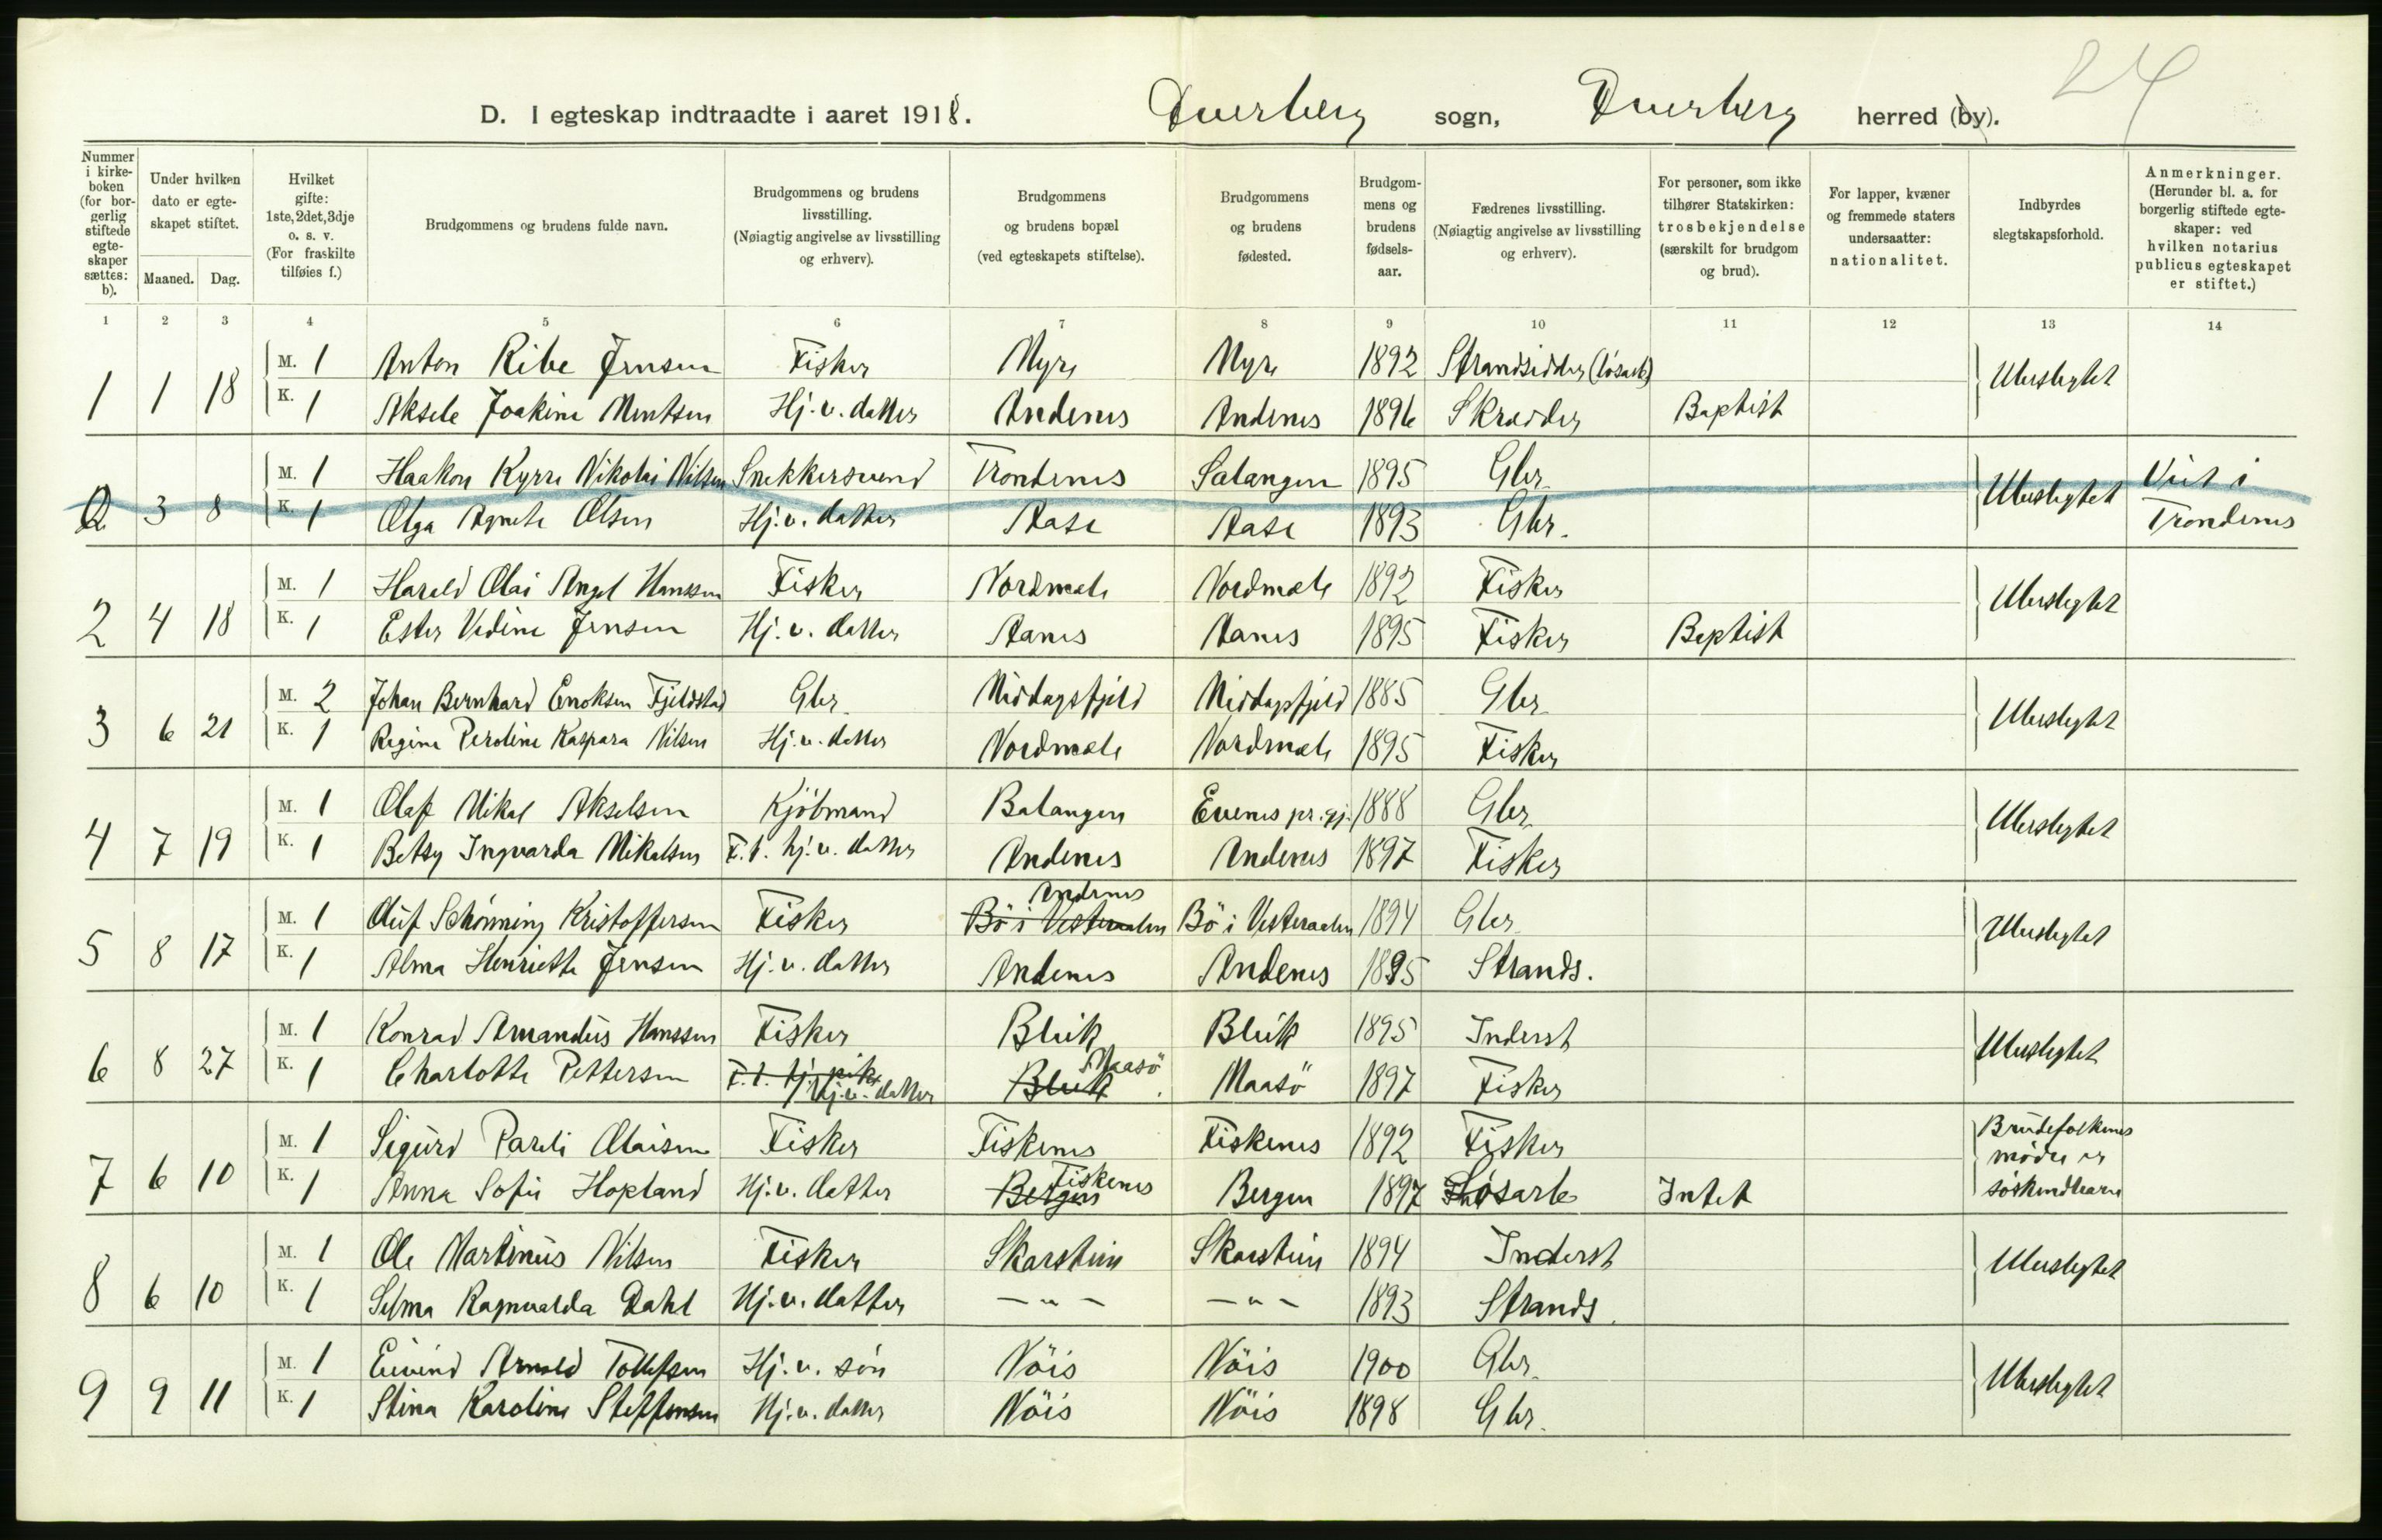 24
D. I egteskap indtraadte i aaret 1918. Dverberg sogn, Dverberg herred (by).
Nummer i kirke-boken (for bor-gerlig stiftede egte-skaper sættes: b).
Under hvilken dato er egte-skapet stiftet.
Maaned. Dag.
Hvilket gifte: 1ste, 2det, 3dje o. s. v. (For fraskilte tilføies f.)
Brudgommens og brudens fulde navn.
Brudgommens og brudens livsstilling. (Nøiagtig angivelse av livsstilling og erhverv).
Brudgommens og brudens bopæl (ved egteskapets stiftelse).
Brudgommens og brudens fødested.
Brudgom-mens og brudens fødsels-aar.
Fædrenes livsstilling. (Nøiagtig angivelse av livsstilling og erhverv).
For personer, som ikke tilhører Statskirken: trosbekjendelse (særskilt for brudgom og brud).
For lapper, kvæner og fremmede staters undersaatter: nationalitet.
Indbyrdes slegtskapsforhold.
Anmerkninger. (Herunder bl. a. for borgerlig stiftede egte-skaper: ved hvilken notarius publicus egteskapet er stiftet.)
1 2 3 4 5 6 7 8 9 10 11 12 13 14
1 1 18 M. 1 Anton Ribe Jensen Fisker Myre Myre 1892 Strandsidder (løsarb) Ubeslegtet
K. 1 Aksele Joakine Mentsen Hj. v. datter Andenes Andenes 1896 Skrædder Baptist
2 3 8 M. 1 Haakon Kyrre Nikolai Nilsen Snekkersvend Trondenes Salangen 1895 Gbr. Ubeslegtet Viet i
K. 1 Olga Agnete Olsen Hj. v. datter Aase Aase 1893 Gbr. Trondenes
2 4 18 M. 1 Harald Olai Angel Hanssen Fisker Nordmele Nordmele 1892 Fisker Ubeslegtet
K. 1 Ester Vedine Jensen Hj. v. datter Aanes Aanes 1895 Fisker Baptist
3 6 21 M. 2 Johan Bernhard Enoksen Fjeldstad Gbr. Middagsfjeld Middagsfjeld 1885 Gbr. Ubeslegtet
K. 1 Regine Peroline Kaspara Nilsen Hj. v. datter Nordmele Nordmele 1895 Fisker
4 7 19 M. 1 Olaf Mikal Akselsen Kjöbmand Balangen Evenes pr.gj. 1888 Gbr. Ubeslegtet
K. 1 Betsy Ingvarda Mikalsen F. t. hj. v. datter Andenes Andenes 1897 Fisker
Andenes
5 8 17 M. 1 Oluf Schönning Kristoffersen Fisker Bö i Vesteraalen Bö i Vesteraalen 1894 Gbr. Ubeslegtet
K. 1 Alma Henriette Jensen Hj. v. datter Andenes Andenes 1895 Strands.
6 8 27 M. 1 Konrad Amandus Hanssen Fisker Bleik Bleik 1895 Inderst Ubeslegtet
K. 1 Charlotte Pettersen F. t. hj. pike Hj. v. datter Bleik Maasö Maasö 1897 Fisker
7 6 10 M. 1 Sigurd Pareli Olaisen Fisker Fiskenes Fiskenes 1892 Fisker Brudefolkenes
mødre er
K. 1 Anna Sofie Hopland Hj. v. datter Bergen Fiskenes Bergen 1897 Løsarb Intet søskendbarn
8 6 10 M. 1 Ole Martinus Nilsen Fisker Skarstein Skarstein 1894 Inderst Ubeslegtet
K. 1 Selma Ragnvalda Dahl Hj. v. datter - " - - " - 1893 Strands.
9 9 11 M. 1 Eivind Arnold Tollefsen Hj. v. søn Nöis Nöis 1900 Gbr. Ubeslegtet
K. 1 Stina Karoline Steffensen Hj. v. datter Nöis Nöis 1898 Gbr.